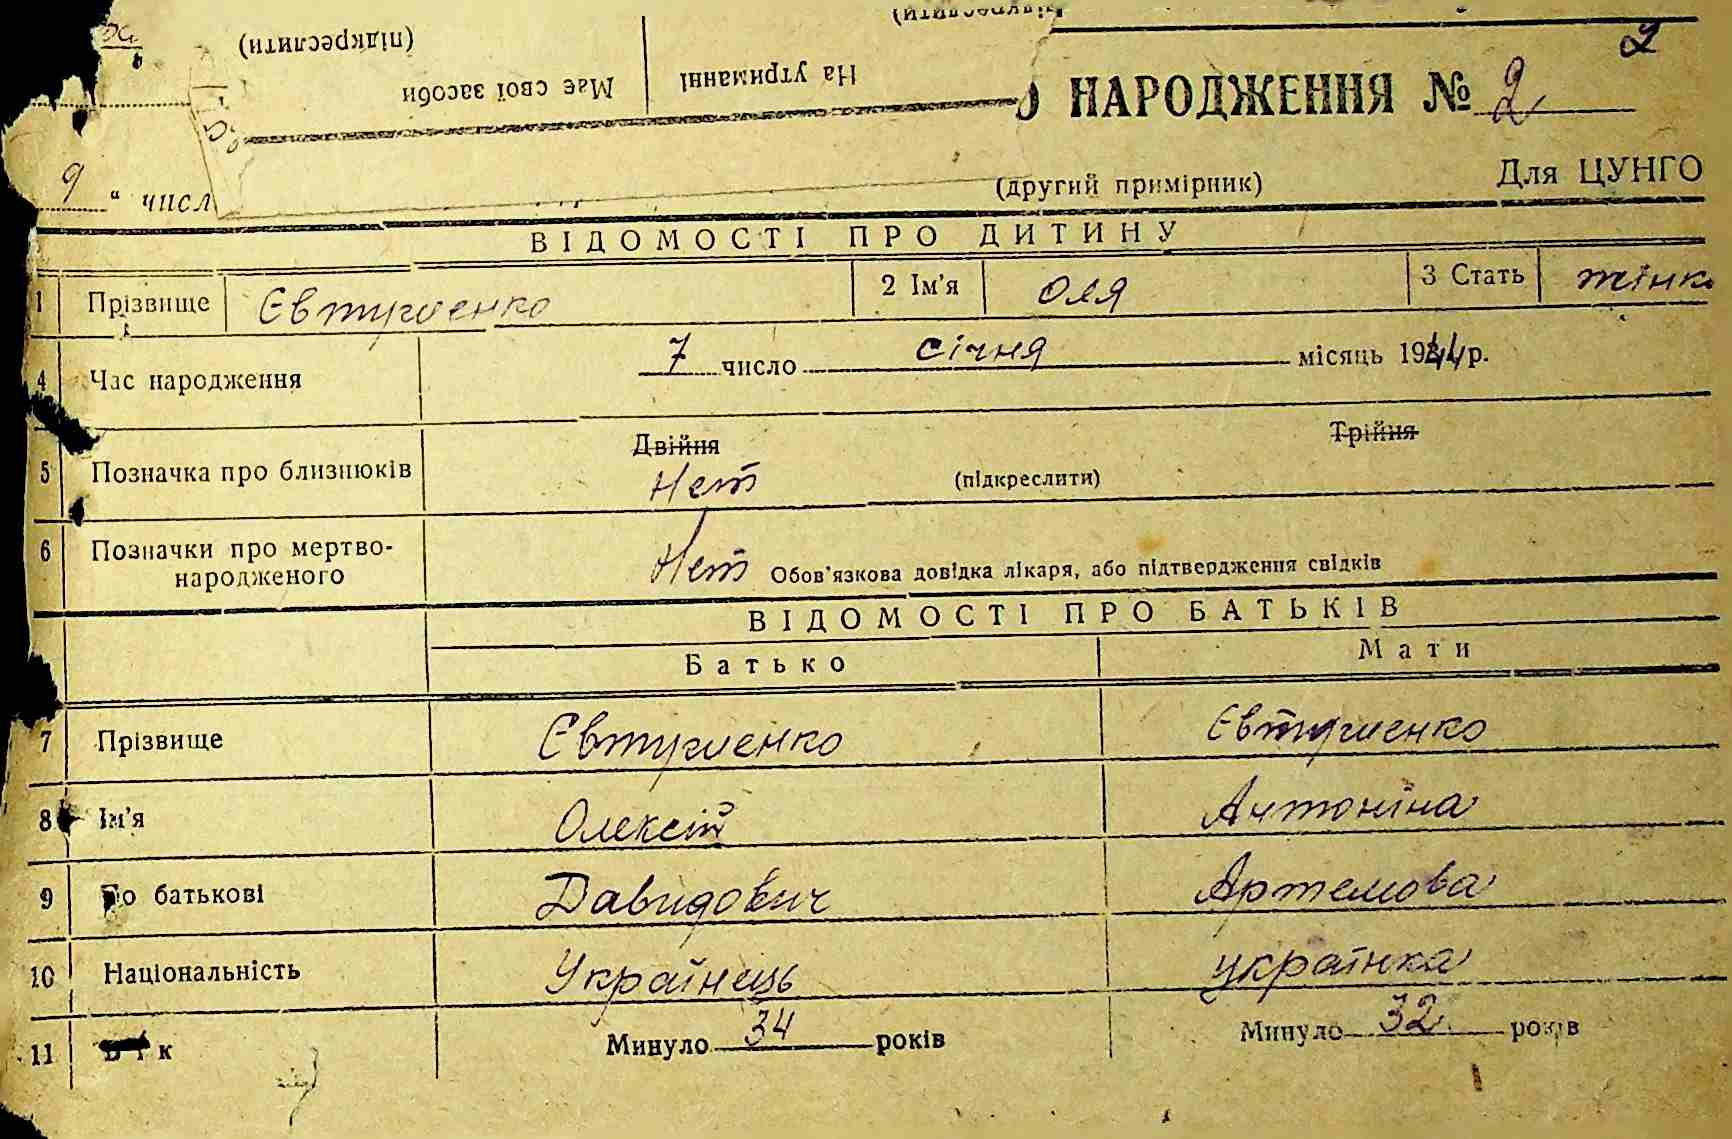 (підкреслити)
Має свої засоби
На утриманні
2
О НАРОДЖЕННЯ № 2
9 " числ
(другий примірник)
Для ЦУНГО
ВІДОМОСТІ ПРО ДИТИНУ
1 Прізвище Євтушенко 2 Ім'я Оля 3 Стать жінк
4 Час народження 7 число січня місяць 1944 р.
Двійня Трійня
5 Позначка про близнюків Нет (підкреслити)
6 Позначки про мертво-
народженого Нет Обов'язкова довідка лікаря, або підтвердження свідків
ВІДОМОСТІ ПРО БАТЬКІВ
Батько Мати
7 Прізвище Євтушенко Євтушенко
8 Ім'я Олексій Антоніна
9 По батькові Давидович Артемова
10 Національність Українець українка
11 Вік Минуло 34 років Минуло 32 років